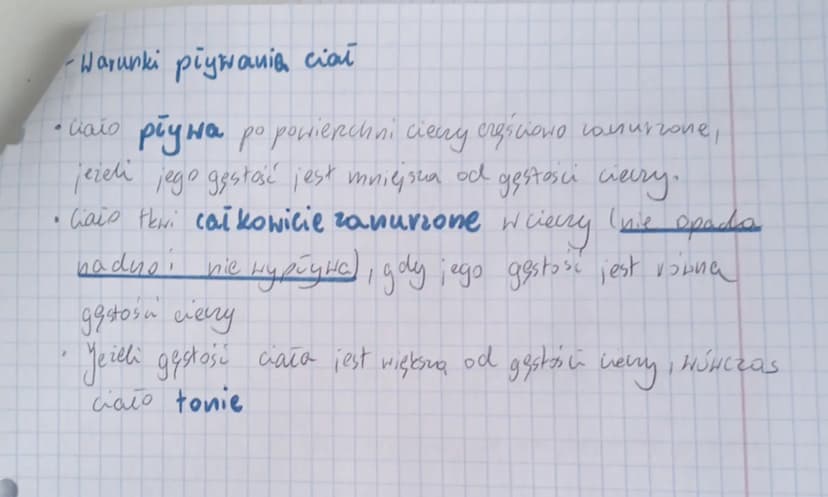 - Warunki pływania ciał
• Ciało pływa po powierzchni cieczy częściowo zanurzone,
jeżeli jego gęstość jest mniejsza od gęstości cieczy.
• Ciało tkwi całkowicie zanurzone w cieczy (nie opada
na dno i nie wypływa), gdy jego gęstość jest równa
gęstości cieczy
• Jeżeli gęstość ciała jest większa od gęstości cieczy, wówczas
ciało tonie